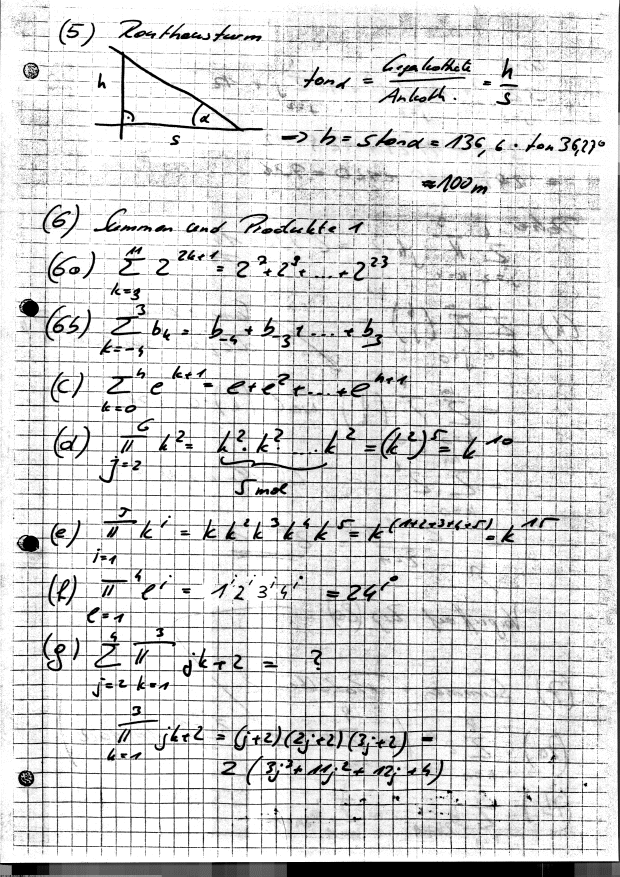 (5) Rathausturm
h
α
s
tan α = Gegenkathete / Ankath. = h / s
→ h = s tan α = 136,6 · tan 36,27°
≈ 100 m
(6) Summen und Produkte 1
(6a) ∑_{k=3}^{11} 2^{2k+1} = 2^7 + 2^9 + ... + 2^{23}
(6b) ∑_{k=-4}^{3} b_k = b_{-4} + b_{-3} + ... + b_3
(c) ∑_{k=0}^{n} e^{k+1} = e + e^2 + ... + e^{n+1}
(d) ∏_{j=2}^{6} k^2 = k^2 · k^2 · ... k^2 = (k^2)^5 = k^{10}
5 mal
(e) ∏_{i=1}^{5} k^i = k k^2 k^3 k^4 k^5 = k^{(1+2+3+4+5)} = k^{15}
(f) ∏_{l=1}^{4} l^i = 1^i 2^i 3^i 4^i = 24^i
(g) ∑_{j=2}^{4} ∏_{k=1}^{3} jk+2 = ?
∏_{k=1}^{3} jk+2 = (j+2)(2j+2)(3j+2) =
2 (3j^3 + 11j^2 + 12j + 4)